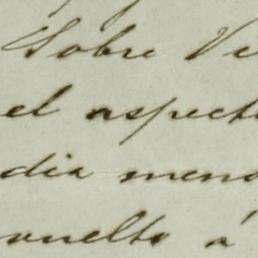 Sobre Vi
el aspect
dia meno
vuelto á